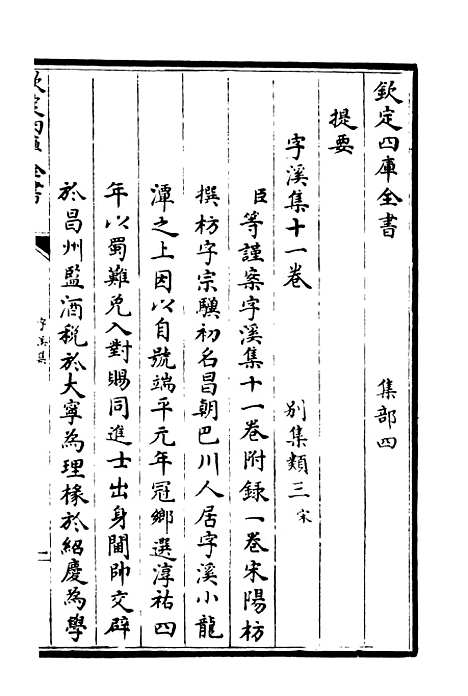 欽定四庫全書 集部四
提要
字溪集十一卷 別集類三宋
臣等謹案字溪集十一卷附録一卷宋陽枋
撰枋字宗驥初名昌朝巴川人居字溪小龍
潭之上因以自號端平元年冠鄉選淳祐四
年以蜀難免入對賜同進士出身閫帥交辟
於昌州監酒稅於大寧為理掾於紹慶為學
欽定四庫全書
字溪集
一